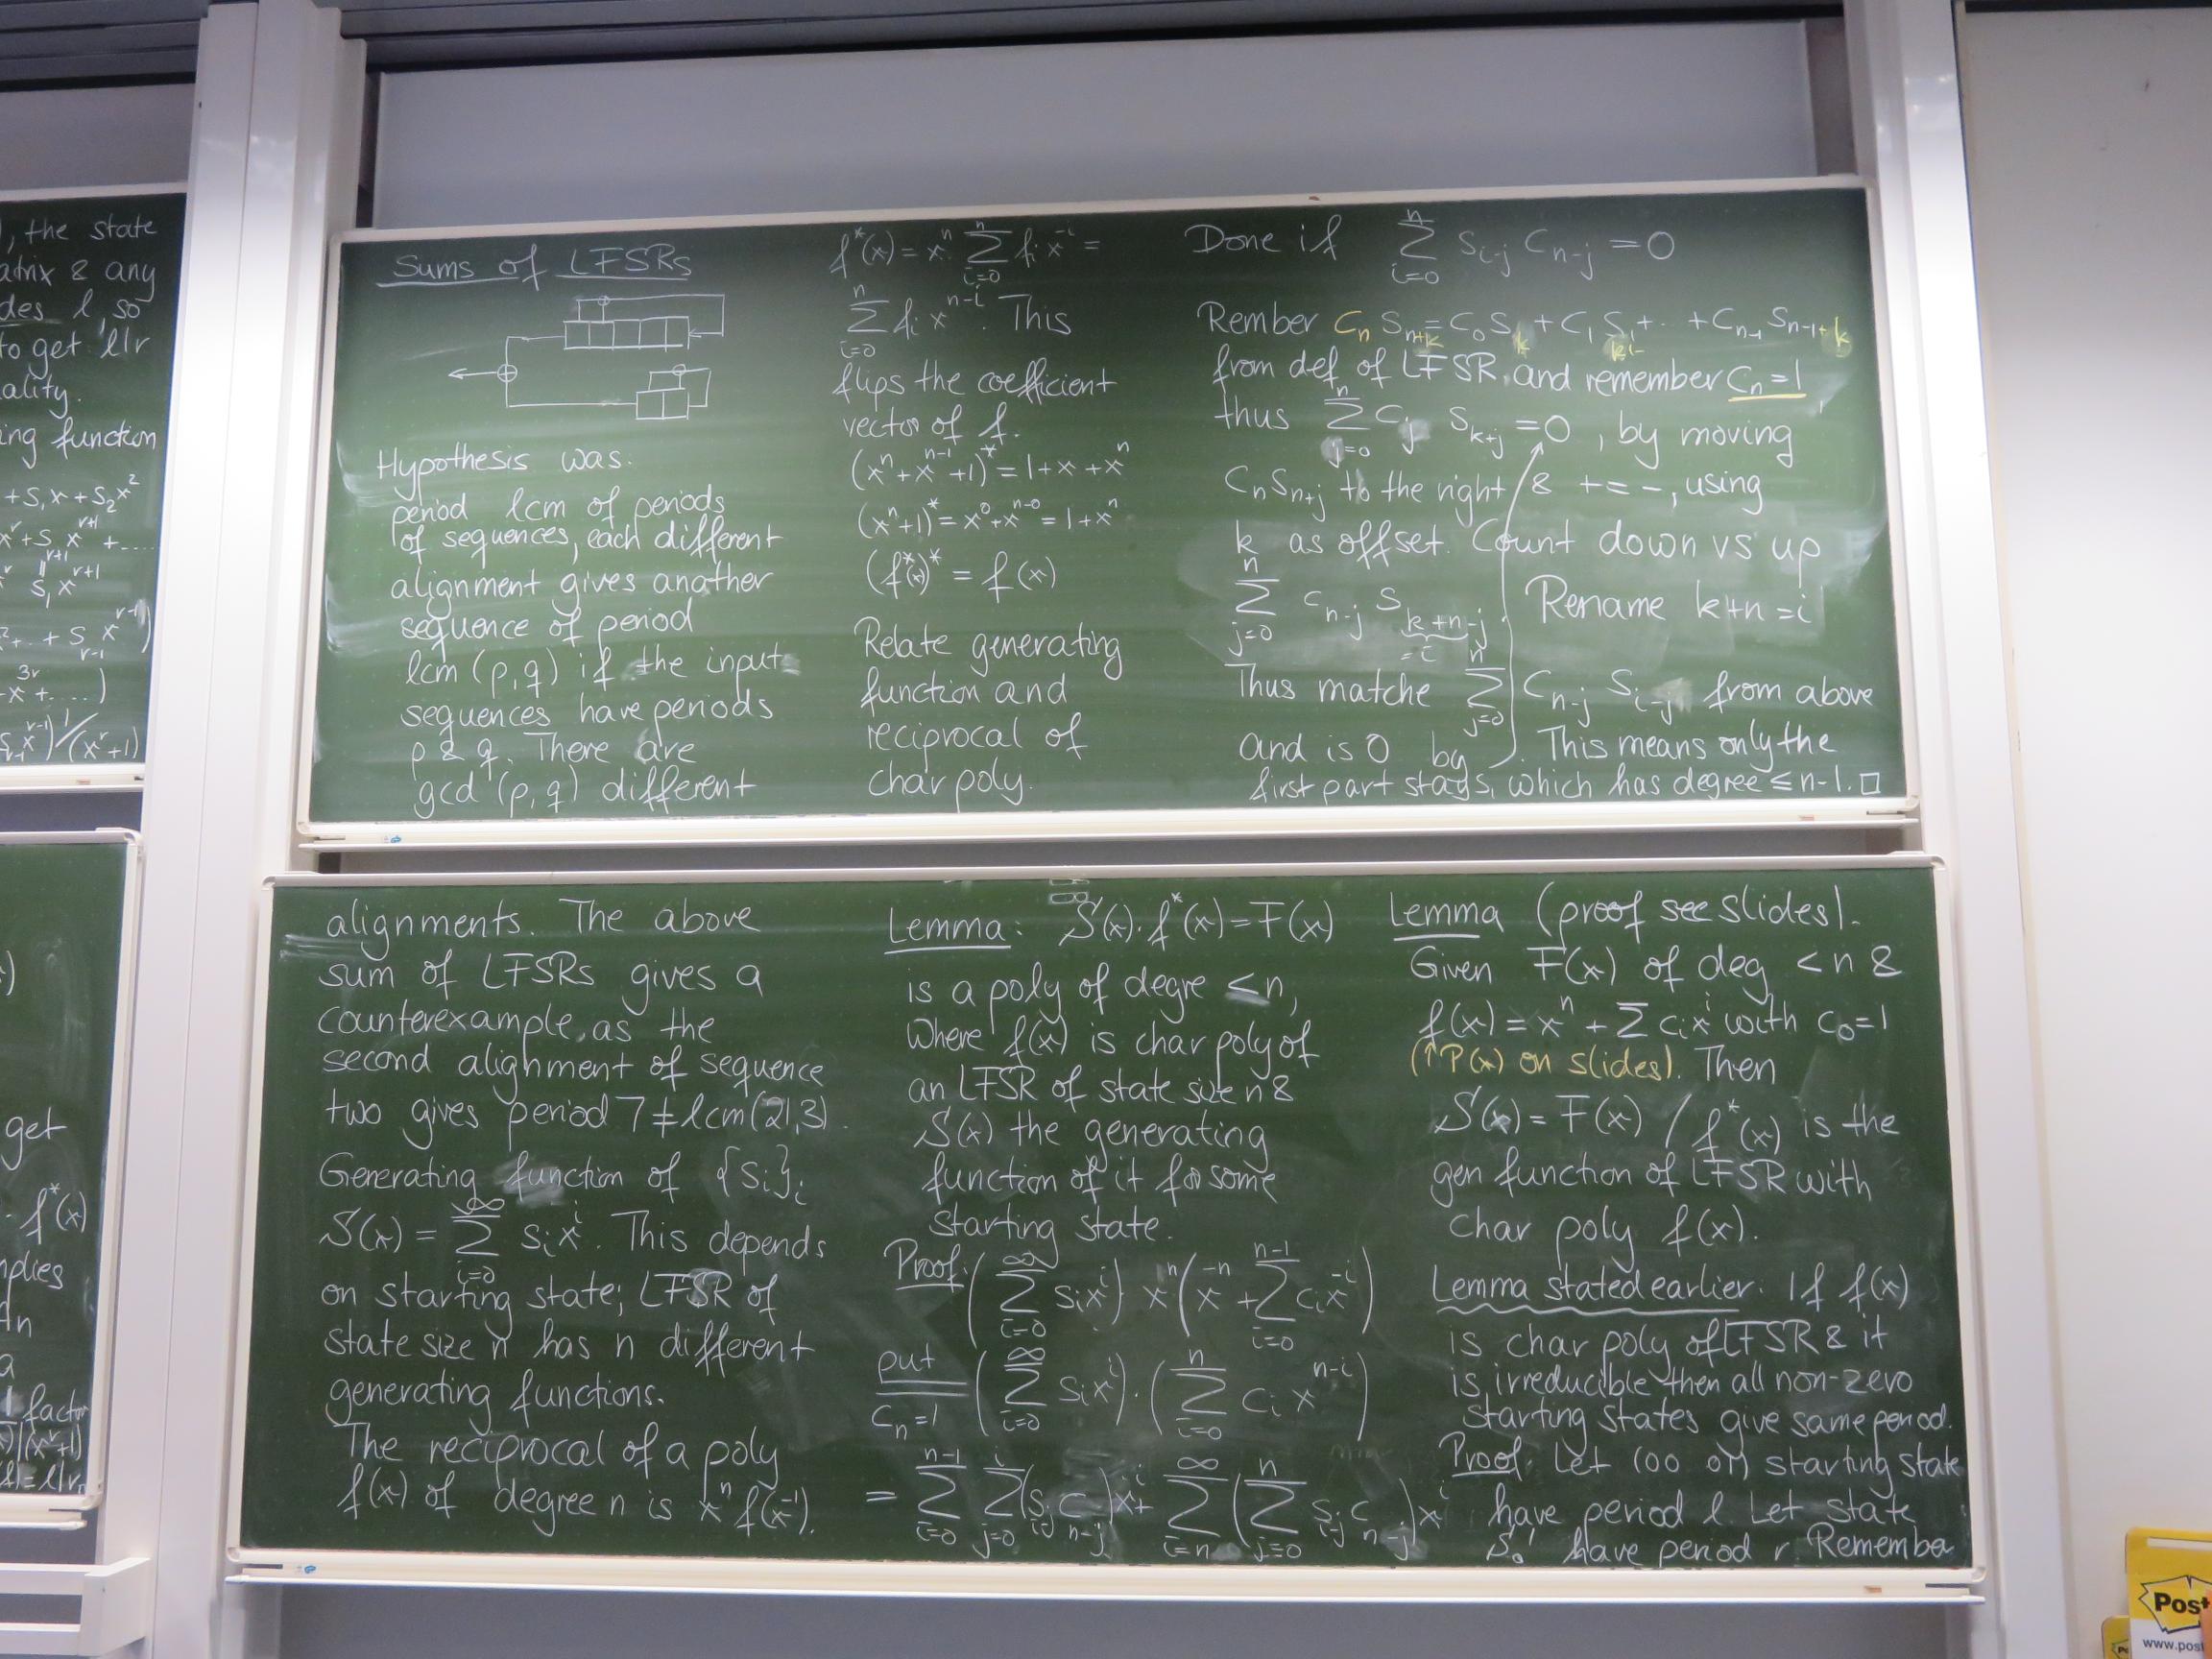 , the state
atrix & any
des l, so
to get l|r
ality.
ing function
+ S₁x + S₂x²
xʳ + S xʳ⁺¹ + ....
r+1
|| r+1
S₁ x
+ S xʳ⁻¹)
r-1
x³ʳ + ....)
xʳ⁻¹)/(xʳ+1)
get
f*(x)
mplies
a
1 factor
|(xʳ+1)
= l|r.
Sums of LFSRs
Hypothesis was:
period lcm of periods
of sequences, each different
alignment gives another
sequence of period
lcm (p,q) if the input
sequences have periods
p & q. There are
gcd (p,q) different
f*(x) = xⁿ · Σ_{i=0}^{n} fᵢ x⁻ⁱ =
Σ_{i=0}^{n} fᵢ xⁿ⁻ⁱ. This
flips the coefficient
vector of f.
(xⁿ + xⁿ⁻¹ + 1)* = 1 + x + xⁿ
(xⁿ+1)* = x⁰ + xⁿ⁻⁰ = 1 + xⁿ
(f*(x))* = f(x)
Relate generating
function and
reciprocal of
char poly.
Done if Σ_{i=0}^{n} S_{i-j} C_{n-j} = 0
Rember Cₙ S_{n+k} = C₀ S_k + C₁ S_{k+1} + .. + C_{n-1} S_{n-1+k}
from def of LFSR, and remember Cₙ = 1
thus Σ_{j=0}^{n} C_j S_{k+j} = 0, by moving
Cₙ S_{n+j} to the right & + = -, using
k as offset. Count down vs up
Σ_{j=0}^{n} C_{n-j} S_{k+n-j} Rename k+n = i
= i
Thus matche Σ_{j=0}^{n} C_{n-j} S_{i-j} from above
and is 0 by . This means only the
first part stays, which has degree ≤ n-1. □
alignments. The above
sum of LFSRs gives a
counterexample, as the
second alignment of sequence
two gives period 7 ≠ lcm(21,3).
Generating function of {Sᵢ}ᵢ
S(x) = Σ_{i=0}^{∞} Sᵢxⁱ. This depends
on starting state; LFSR of
state size n has n different
generating functions.
The reciprocal of a poly
f(x) of degree n is xⁿ f(x⁻¹).
Lemma: S(x)·f*(x) = F(x)
is a poly of degre < n,
where f(x) is char poly of
an LFSR of state size n &
S(x) the generating
function of it for some
starting state.
Proof: (Σ_{i=0}^{∞} Sᵢxⁱ) xⁿ (x⁻ⁿ + Σ_{i=0}^{n-1} Cᵢx⁻ⁱ)
put Cₙ=1 (Σ_{i=0}^{∞} Sᵢxⁱ) · (Σ_{i=0}^{n} Cᵢ xⁿ⁻ⁱ)
= Σ_{i=0}^{n-1} Σ_{j=0}^{i} (S_{i-j} C_{n-j}) xⁱ + Σ_{i=n}^{∞} (Σ_{j=0}^{n} S_{i-j} C_{n-j}) xⁱ
Lemma (proof see slides).
Given F(x) of deg < n &
f(x) = xⁿ + Σ Cᵢxⁱ with C₀ = 1
(↑ P(x) on slides). Then
S(x) = F(x) / f*(x) is the
gen function of LFSR with
char poly f(x).
Lemma stated earlier: If f(x)
is char poly of LFSR & it
is irreducible then all non-zero
starting states give same period.
Proof: Let (00 01) starting state
have period l. Let state
S₀' have period r. Remembe
Post
www.post